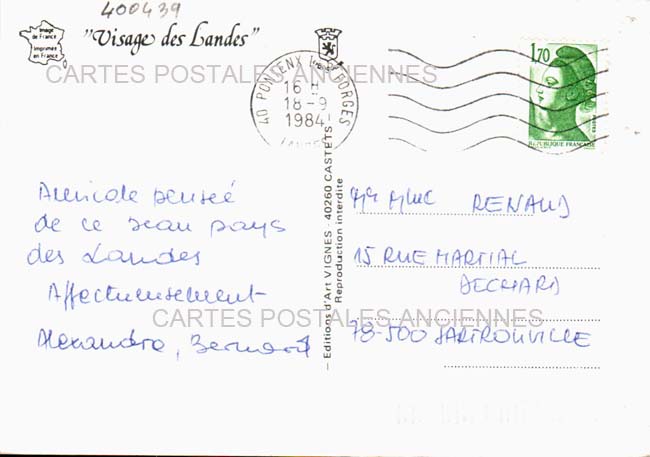 400439
Image
de France
Imprimée
en France
"Visage des Landes"
CARTES POSTALES ANCIENNES
40 PONTENX LES FORGES
16 H
18-9
1984
1,70
REPUBLIQUE FRANÇAISE
Amicale pensée
de ce beau pays
des Landes
Affectueusement
Alexandra, Bernard
— Editions d'Art VIGNES - 40260 CASTETS
Reproduction interdite
Mr Mme RENAUD
15 RUE MARTIAL
DECHARD
78-500 SARTROUVILLE
CARTES POSTALES ANCIENNES